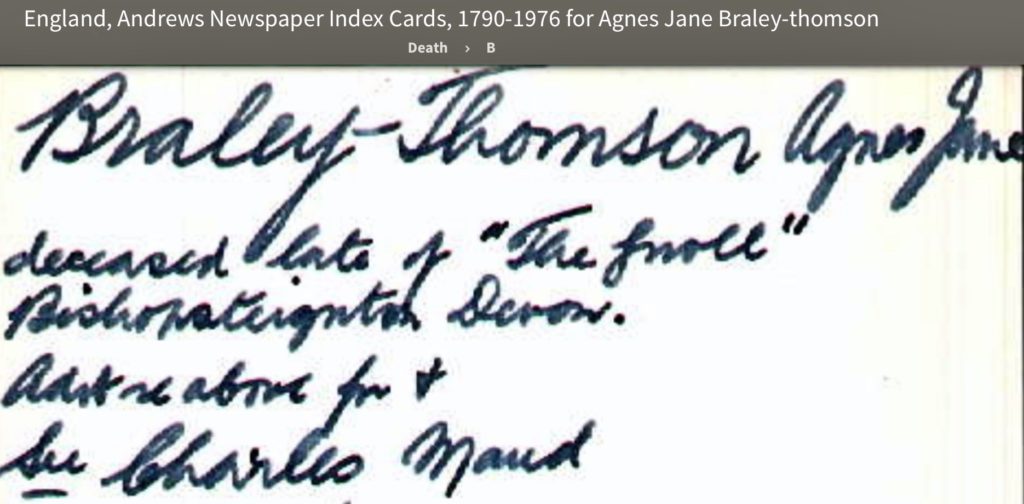 England, Andrews Newspaper Index Cards, 1790-1976 for Agnes Jane Braley-thomson
Death › B
Braley-Thomson Agnes Jane
deceased late of "The Knoll"
Bishopsteignton Devon.
Advt re above for &
See Charles Maud